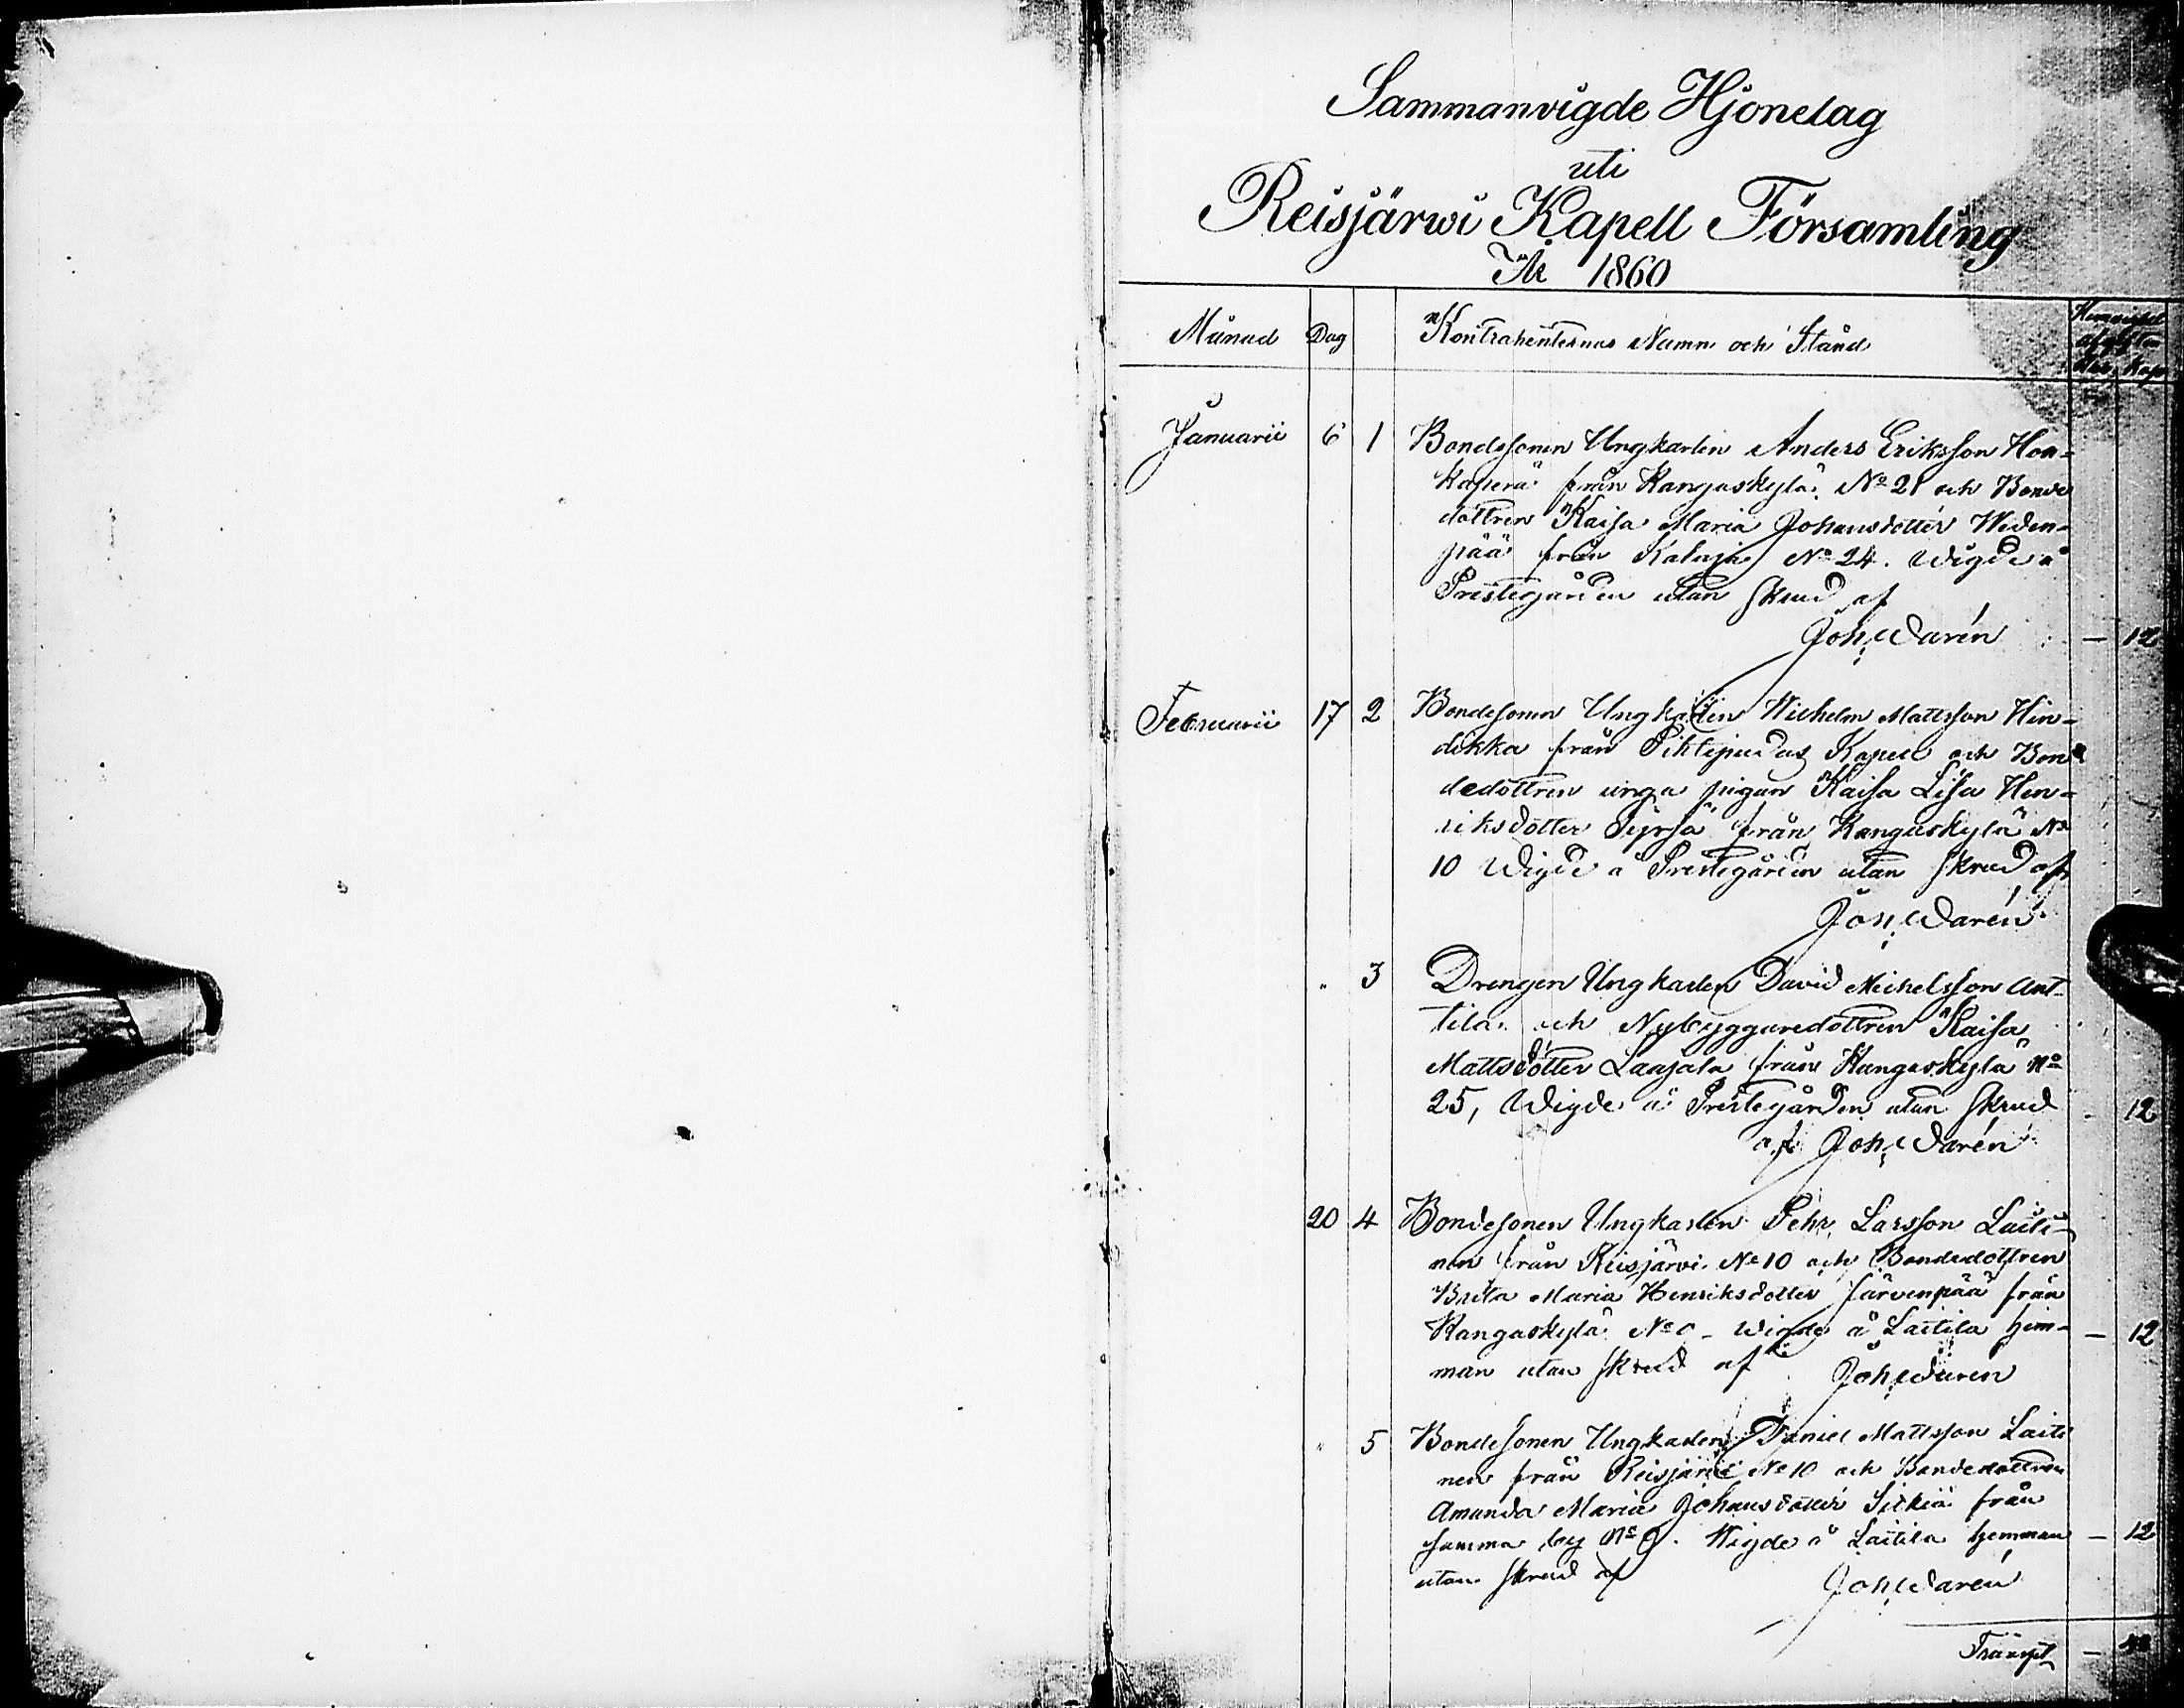 Sammanvigde Hjonelag
uti
Reisjärwi Kapell Församling
År 1860
Månad Dag Kontrahenternas Namn och Stånd
afgifter
Kop
Januarii 6 1 Bondesonen Ungkarlen Anders Eriksson Hon-
kaperä från Kangaskylä No 21 och Bonde
dottren Kaisa Maria Johansdotter Weden-
pää från Kalaja No 24. Wigde å
Prestegården utan Skrud af
Joh. Warén — 12
Februarii 17 2 Bondesonen Ungkarlen Wilhelm Mattsson Hin-
dikka från Pihtipudas Kapell och Bon
dedottren unga pigan Kaisa Lisa Hen-
riksdotter från Kangaskylä No
10 Wigde å Prestegården utan Skrud af
Joh. Warén
" 3 Drengen Ungkarlen David Michelsson Ant-
tila och Nybyggaredottren Kaisa
Mattsdotter Laajala från Kangaskylä No
25, Wigde å Prestegården utan Skrud - 12
af Joh. Warén
20 4 Bondesonen Ungkarlen Pehr Larsson Laiti-
nen från Reisjärvi No 10 och Bondedottren
Brita Maria Henriksdotter Järvenpää från
Kangaskylä No Wigde å Laitila hem- — 12
man utan Skrud af Joh. Warén
" 5 Bondesonen Ungkarlen Daniel Mattsson Laiti
nen från Reisjärvi No 10 och Bondedottren
Amanda Maria Johansdotter från
samma by No 9. Wigde å Laitila hemman — 12
utan Skrud af Joh. Warén
Transpt —